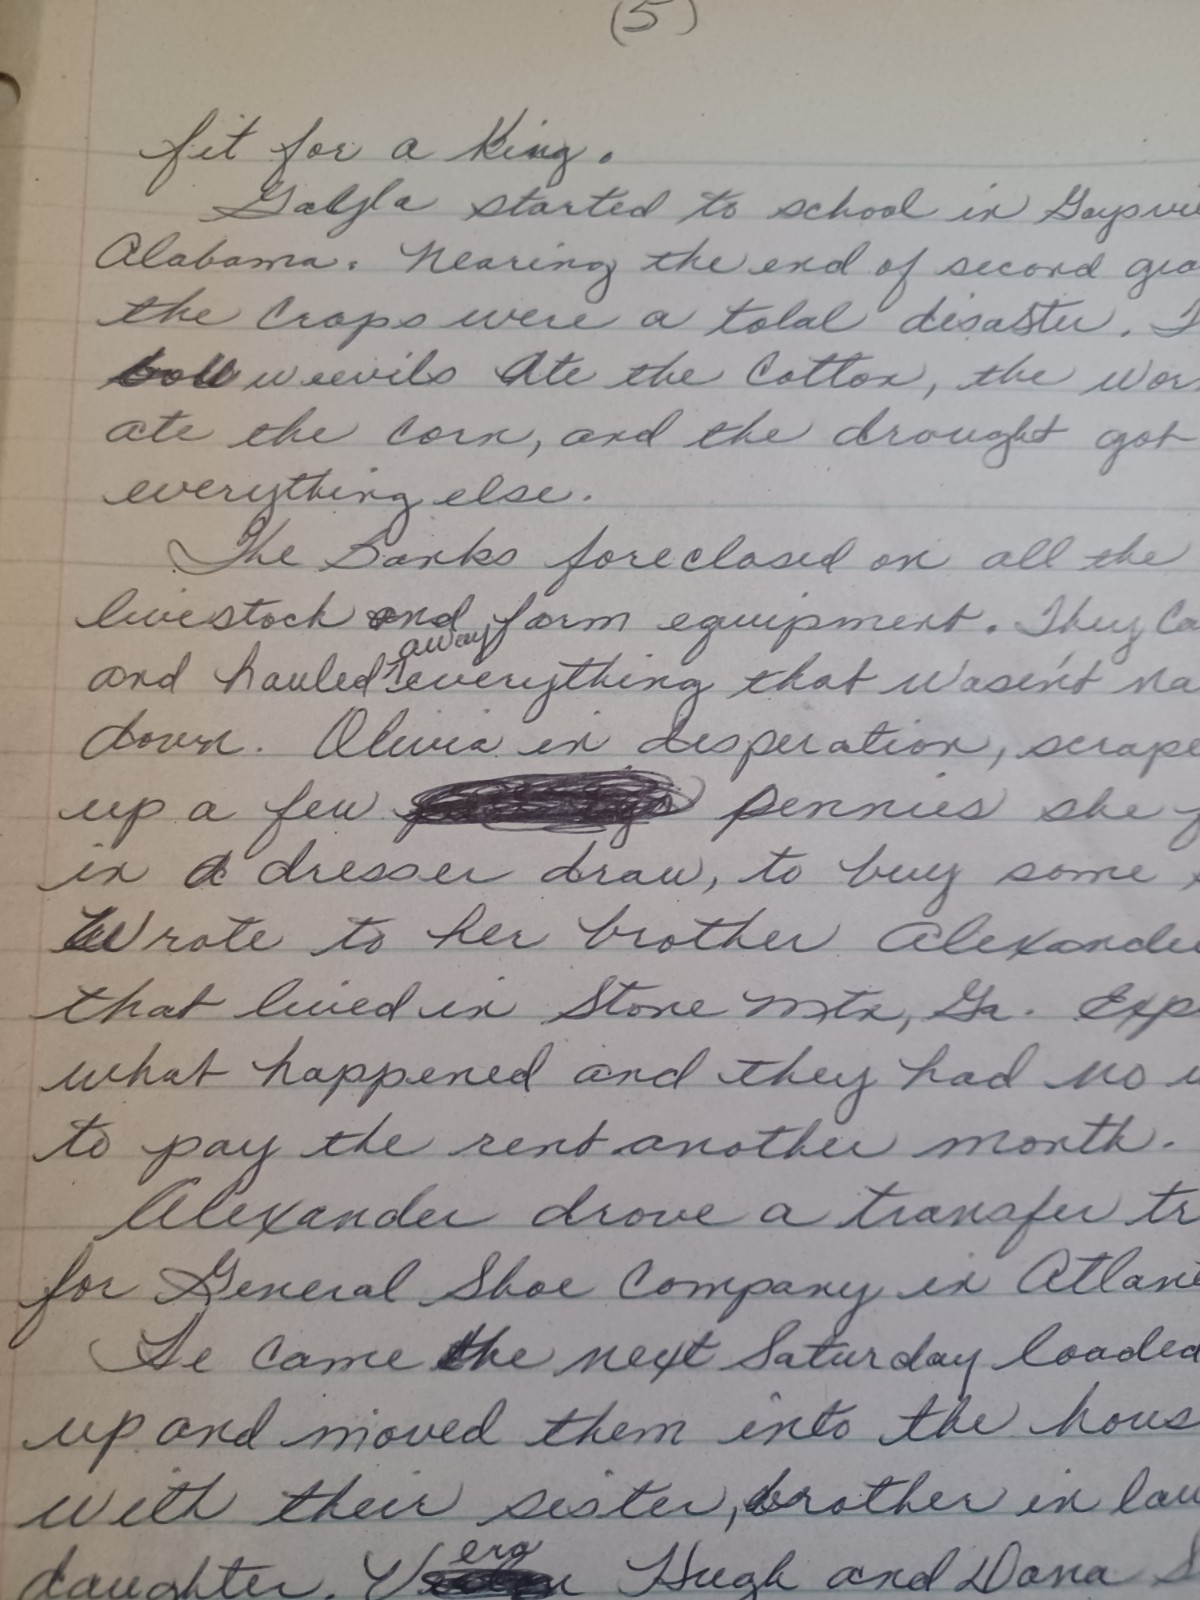 (5)
fit for a King.
Galyla started to school in Gaysvi
Alabama. Nearing the end of second gra
the Crops were a total disaster. T
boll weevils Ate the Cotton, the wor
ate the Corn, and the drought got
everything else.
The Banks foreclosed on all the
livestock and farm equipment. They Ca
away
and hauled everything that wasn't na
down. Olivia in desperation, scrape
up a few pennies she f
in a dresser draw, to buy some s
Wrote to her brother Alexander
that lived in Stone Mtn, Ga. Exp
what happened and they had no w
to pay the rent another month.
Alexander drove a transfer tr
for General Shoe Company in Atlant
He came the next Saturday loaded
up and moved them into the hous
with their sister, brother in law
daughter. Vera Hugh and Dana S